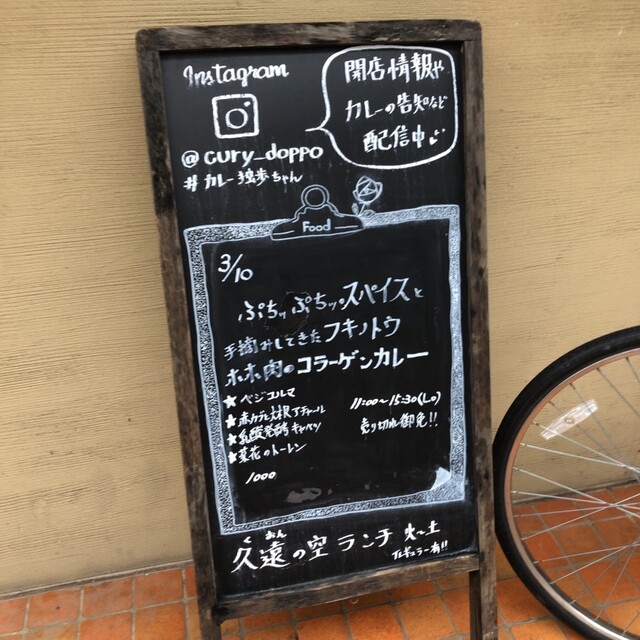 Instagram
開店情報や
カレーの告知など
配信中
@cury_doppo
#カレー独歩ちゃん
Food
3/10
ぷちッぷちッスパイスと
手摘みしてきたフキノトウ
ホホ肉のコラーゲンカレー
★ベジコルマ
★赤カブと大根アチャール
★乳酸発酵キャベツ
★菜花のトーレン
1000
11:00〜15:30(L.o)
売り切れ御免!!
く おん
久遠の空 ランチ 火〜土
イレギュラー有!!